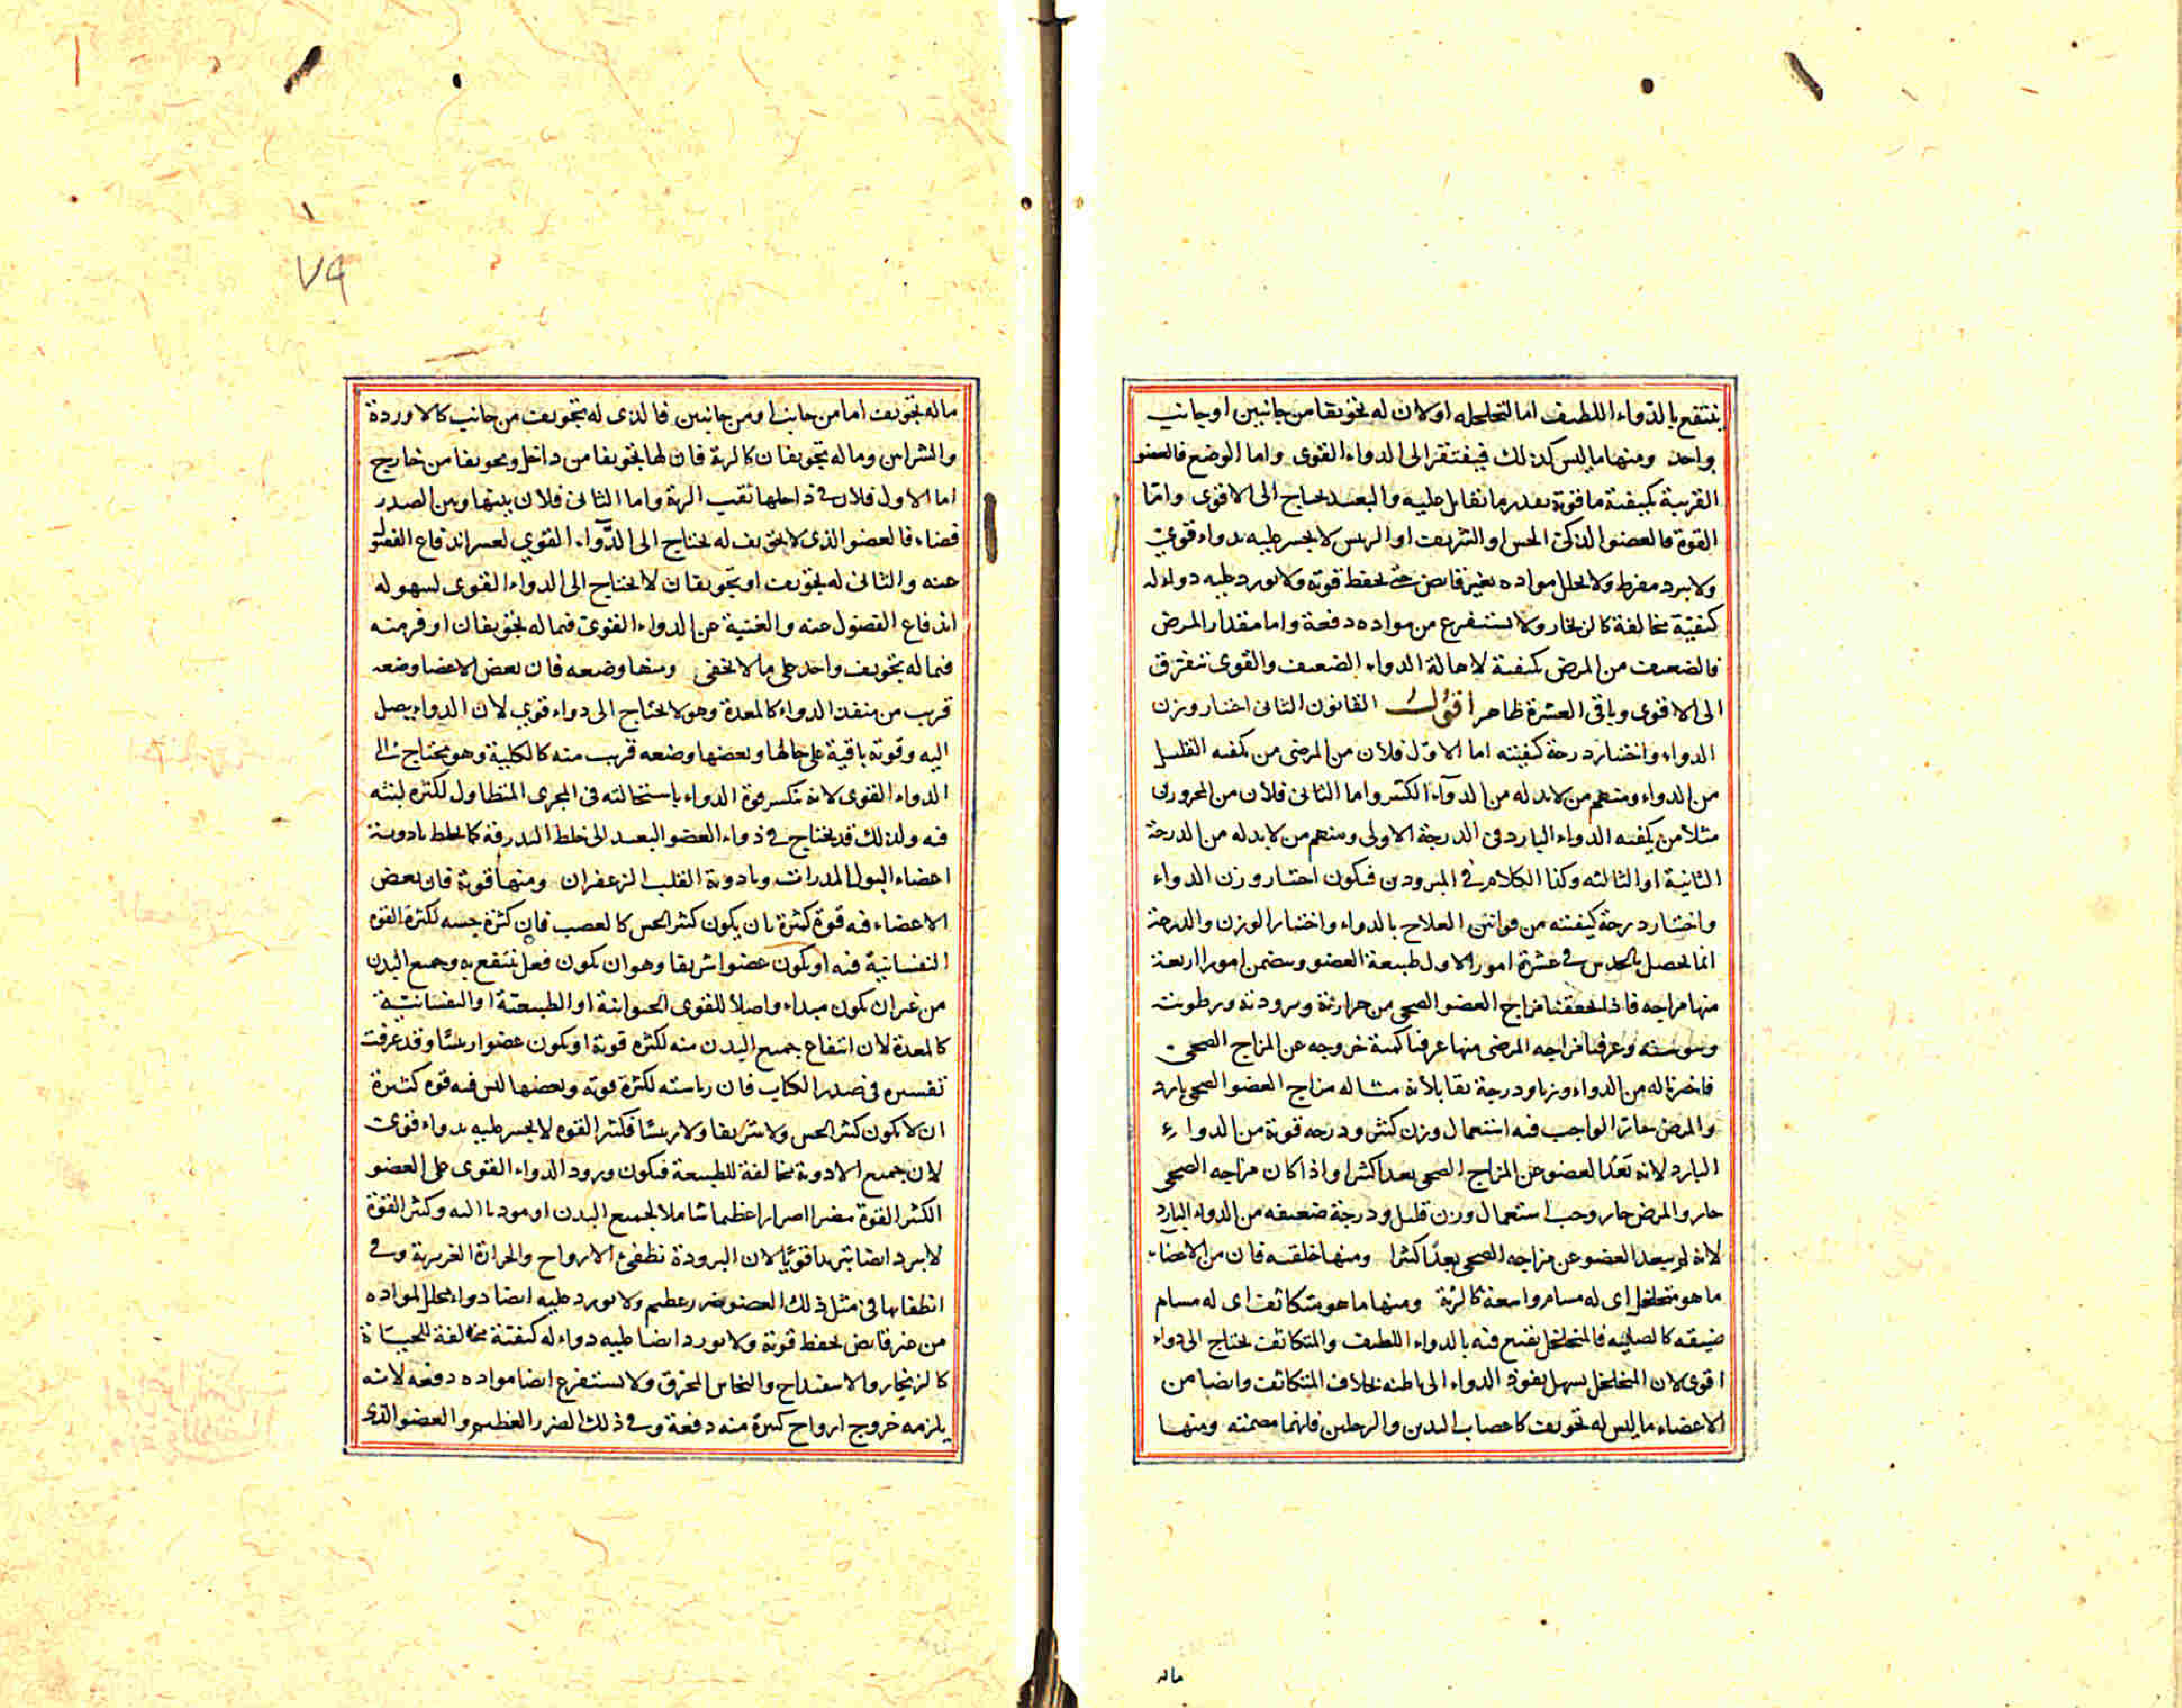 ينتفع بالدواء اللطيف اما لتخلخله او لان له تجويفا من جانبين او جانب
واحد ومنها ما ليس كذلك فيفتقر الى الدواء القوى واما الوضع فالعضو
القريبة يكفيه ما قوة بقدر ما تقابل عليه والبعيد يحتاج الى الاقوى واما
القوة فالعضو الذكى الحس او الشريف او الرئيس لا يجسر عليه بدواء قوى
ولا يبرد مفرط ولا يحلل مواده بغير قابض حتى يحفظ قوته ولا يورد عليه دواء له
كيفية مخالفة كالزنجار ولا يستفرغ من مواده دفعة واما مقدار المرض
فالضعيف من المرض يكفيه لا محالة الدواء الضعيف والقوى تفترق
الى الاقوى وباقى العشرة ظاهر اقول القانون الثانى اختيار وزن
الدواء واختيار درجة كيفيته اما الاول فلان من المرضى من يكفيه القليل
من الدواء ومنهم من لابد له من الدواء الكثير واما الثانى فلان من المحرورين
مثلا من يكفيه الدواء البارد فى الدرجة الاولى ومنهم من لابد له من الدرجة
الثانية او الثالثه وكذا الكلام فى المبرودين فيكون اختيار وزن الدواء
واختيار درجة كيفيته من قوانين العلاج بالدواء واختيار الوزن والدرجة
انما يحصل بالحدس فى عشرة امور الاول طبيعة العضو ويتضمن امورا اربعة
منها مزاجه فاذا تحققنا مزاج العضو الصحى من حرارته وبرودته ورطوبته
ويبوسته وعرفنا مزاجه المرضى منها عرفنا كمية خروجه عن المزاج الصحى
فاخترنا له من الدواء وزنا ودرجة تقابلانه مثاله مزاج العضو الصحى بارد
والمرض حار الواجب فيه استعمال وزن كثير ودرجه قوية من الدواء
البارد لانه بعد العضو عن المزاج الصحى بعدا كثيرا واذا كان مزاجه الصحى
حار والمرض حار وجب استعمال وزن قليل ودرجة ضعيفه من الدواء البارد
لانه لم يبعد العضو عن مزاجه الصحى بعدا كثيرا ومنها خلقته فان من الاعضاء
ما هو متخلخل اى له مسام واسعة كالرئة ومنها ما هو متكاثف اى له مسام
ضيقه كالصلبه فالمتخلخل يقنع فيه بالدواء اللطيف والمتكاثف يحتاج الى دواء
اقوى لان المتخلخل يسهل نفوذ الدواء الى باطنه بخلاف المتكاثف وايضا من
الاعضاء ما ليس له تجويف كاعصاب اليدين والرجلين فانها مصمته ومنها
ماله
٧٩
ماله تجويف اما من جانب او من جانبين فالذى له تجويف من جانب كالاوردة
والشرايين وما له تجويفان كالرية فان لها تجويفا من داخل وتجويفا من خارج
اما الاول فلان فى داخلها ثقب الرية واما الثانى فلان بينها وبين الصدر
فضاء فالعضو الذى لا تجويف له يحتاج الى الدواء القوى لعسر اندفاع الفضول
عنه والثانى له تجويف او تجويفان لا يحتاج الى الدواء القوى لسهوله
اندفاع الفضول عنه والغنية عن الدواء القوى فيما له تجويفان اوفر منه
فيما له تجويف واحد على ما لا يخفى ومنها وضعه فان بعض الاعضا وضعه
قريب من منفذ الدواء كالمعدة وهو لا يحتاج الى دواء قوى لان الدواء يصل
اليه وقوته باقية على حالها وبعضها وضعه قريب منه كالكلية وهو يحتاج الى
الدواء القوى لانه تنكسر قوة الدواء باستحالته فى المجرى المتطاول لكثرة لبثه
فيه ولذلك قد يحتاج فى دواء العضو البعيد الى خلط البدرقة كما يخلط بادوية
اعضاء البول المدرات وبادوية القلب الزعفران ومنها قوته فان بعض
الاعضاء فيه قوة كثيرة بان يكون كثير الحس كالعصب فان كثرة حسه لكثرة القوة
النفسانية فيه او يكون عضوا شريفا وهو ان يكون فعل ينتفع به وجميع البدن
من غير ان يكون مبداء واصلا للقوى الحيوانية او الطبيعية او النفسانية
كالمعدة لان انتفاع جميع البدن منه لكثرة قوته او يكون عضوا رئيسا وقد عرفت
تفسيره فى صدر الكتاب فان رياسته لكثرة قوته وبعضها ليس فيه قوه كثيرة
ان لا يكون كثير الحس ولا شريفا ولا رئيسا فكثير القوه لا يجسر عليه بدواء قوى
لان جميع الادوية مخالفة للطبيعة فيكون ورود الدواء القوى على العضو
الكثير القوة مضرا اضرارا عظيما شاملا لجميع البدن او موديا اليه وكثير القوة
لا يبرد ايضا تبريدا قويا لان البرودة تطفى الارواح والحرارة الغريزية وفى
انطفائها فى مثل ذلك العضو ضرر عظيم ولا يورد عليه ايضا دواء يحلل المواده
من غير قابض يحفظ قوته ولا يورد ايضا عليه دواء له كيفية مخالفة للحياة
كالزنجار والاسفيداج والنحاس المحرق ولا يستفرغ ايضا مواده دفعه لانه
يلزمه خروج ارواح كثيرة منه دفعة وفى ذلك الضرر العظيم والعضو الذى